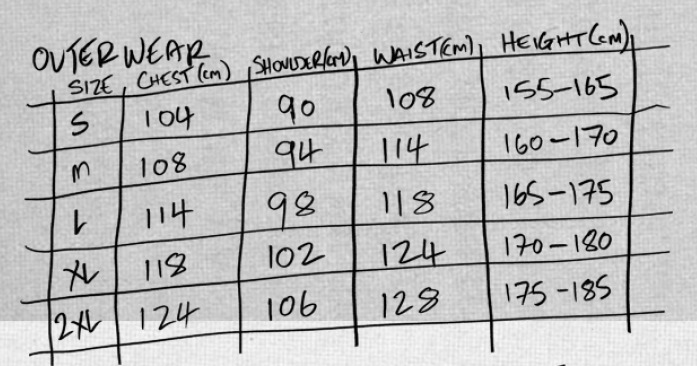 OUTERWEAR
SIZE CHEST (cm) SHOULDER (cm) WAIST (cm) HEIGHT (cm)
S 104 90 108 155-165
M 108 94 114 160-170
L 114 98 118 165-175
XL 118 102 124 170-180
2XL 124 106 128 175-185